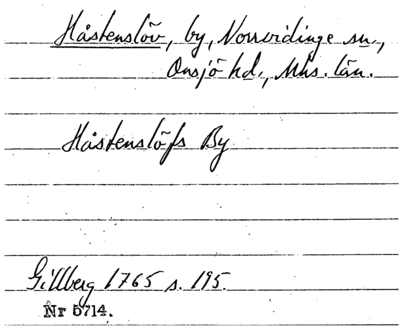 Håstenslöv, by, Norrvidinge sn.,
Onsjö hd., Mhs. län.
Håstenslöfs By
Gillberg 1765 s. 195.
Nr 5714.